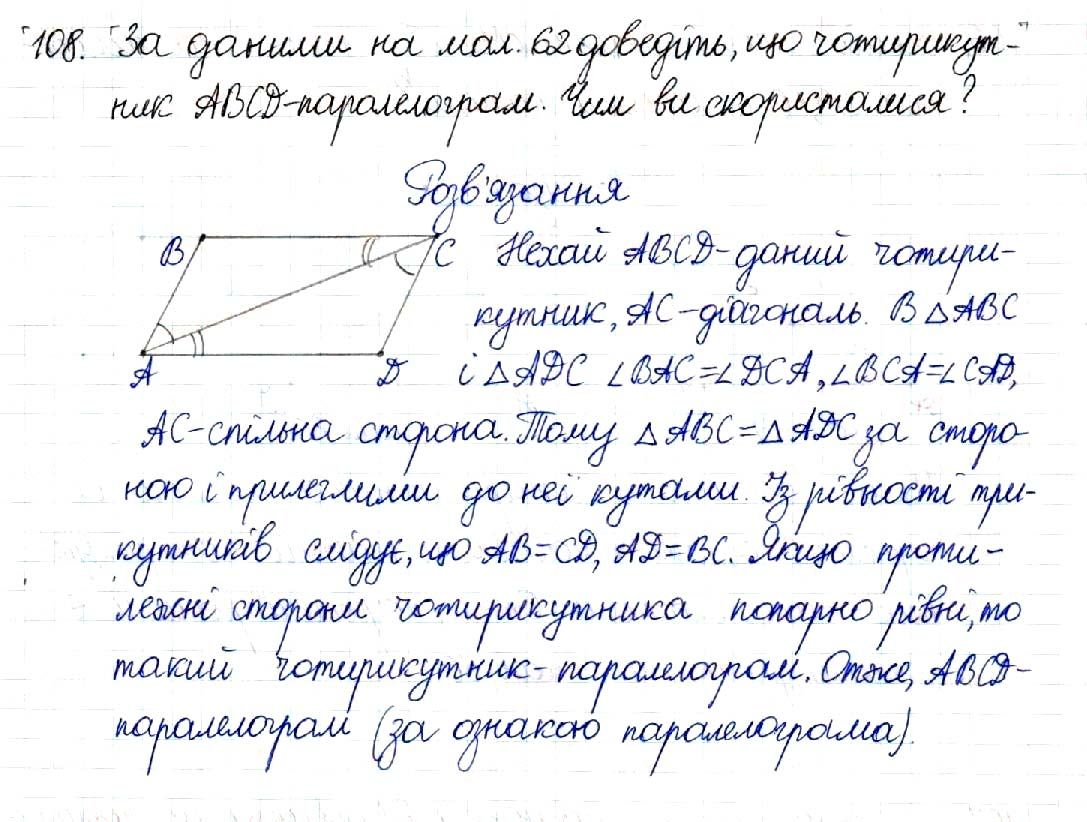 108. За даними на мал. 62 доведіть, що чотирикут-
ник ABCD-паралелограм. Чим ви скористалися?
Розв'язання
B
C
A
D
Нехай ABCD-даний чотири-
кутник, AC-діагональ. В △ABC
і △ADC ∠BAC=∠DCA, ∠BCA=∠CAD,
AC-спільна сторона. Тому △ABC=△ADC за сторо-
ною і прилеглими до неї кутами. Із рівності три-
кутників слідує, що AB=CD, AD=BC. Якщо проти-
лежні сторони чотирикутника попарно рівні, то
такий чотирикутник-паралелограм. Отже, ABCD-
паралелограм (за ознакою паралелограма).